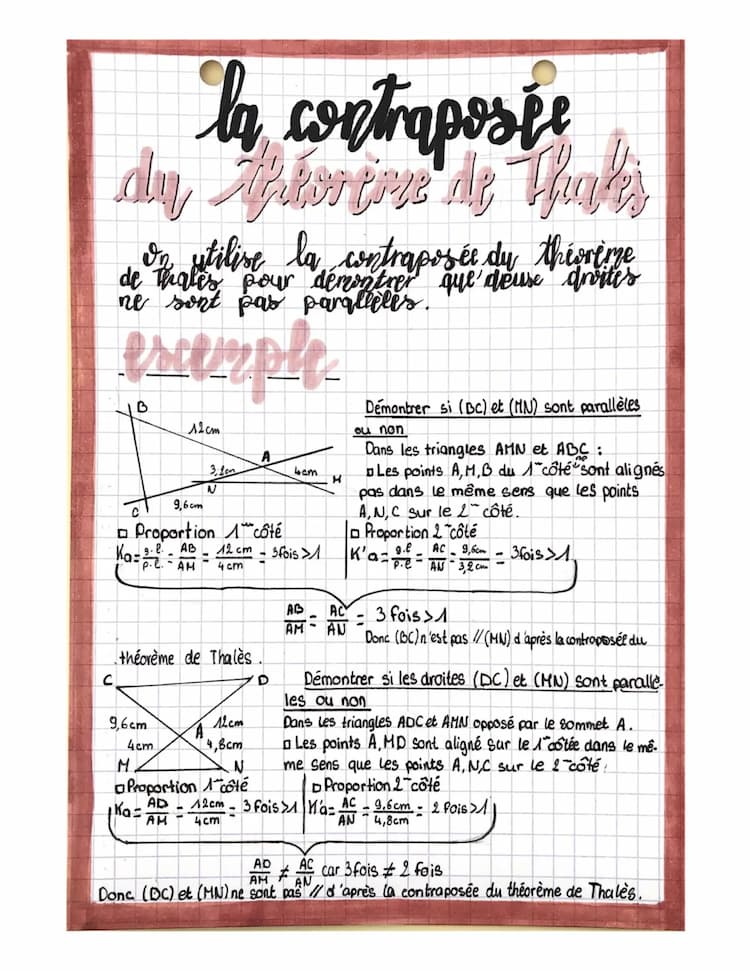 la contraposée
du théorème de Thalès
On utilise la contraposée du théorème
de Thalès pour démontrer que deuse droites
ne sont pas parallèles.
escemple
B
12cm
A
3,2cm
4cm
M
N
9,6cm
C
Démontrer si (BC) et (MN) sont parallèles
ou non
Dans les triangles AMN et ABC :
Les points A, M, B du 1 côté ne sont alignés
pas dans le même sens que les points
A, N, C sur le 2 côté.
Proportion 1 côté
Ka = g.l./p.l. = AB/AM = 12 cm/4 cm = 3 fois > 1
Proportion 2 côté
K'a = g.l/p.l = AC/AN = 9,6cm/3,2cm = 3 fois > 1
AB/AM = AC/AN = 3 fois > 1
Donc (BC) n'est pas // (MN) d'après la contraposée du
théorème de Thalès.
C
D
9,6cm
A
12cm
4cm
4,8cm
M
N
Démontrer si les droites (DC) et (MN) sont parallè-
les ou non
Dans les triangles ADC et AMN opposé par le sommet A.
Les points A, MD sont aligné sur le 1 côtée dans le mê-
me sens que les points A, N, C sur le 2 côté.
Proportion 1 côté
Ka = AD/AM = 12cm/4cm = 3 fois > 1
Proportion 2 côté
K'a = AC/AN = 9,6cm/4,8cm = 2 fois > 1
AD/AM ≠ AC/AN car 3 fois ≠ 2 fois
Donc (DC) et (MN) ne sont pas // d'après la contraposée du théorème de Thalès.